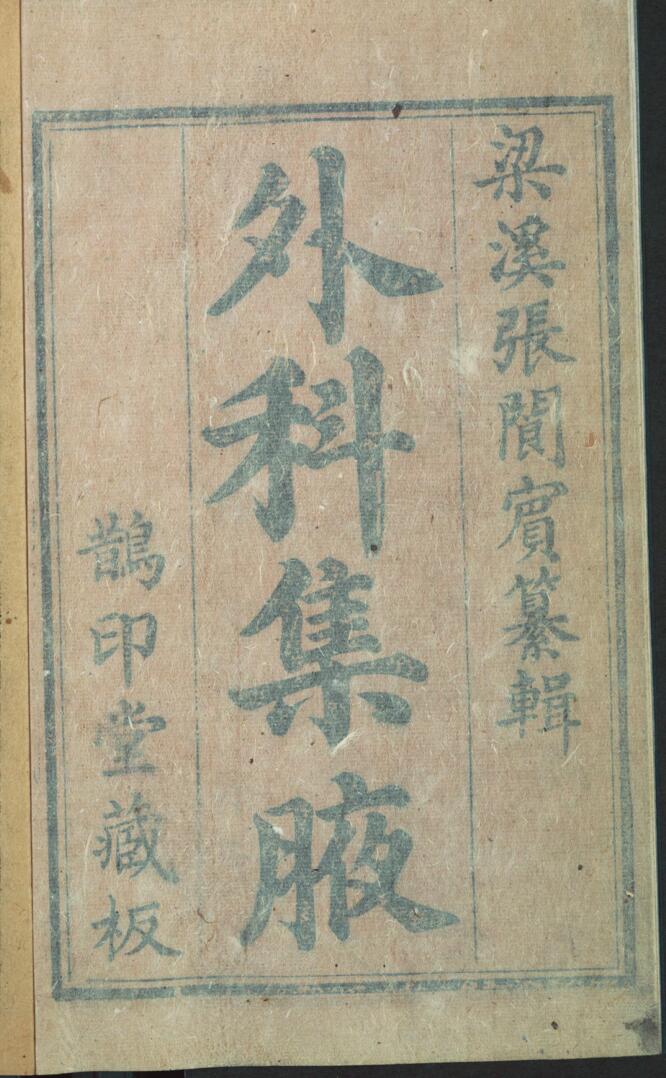 梁溪張閬賓纂輯
外科集腋
鵲印堂藏板